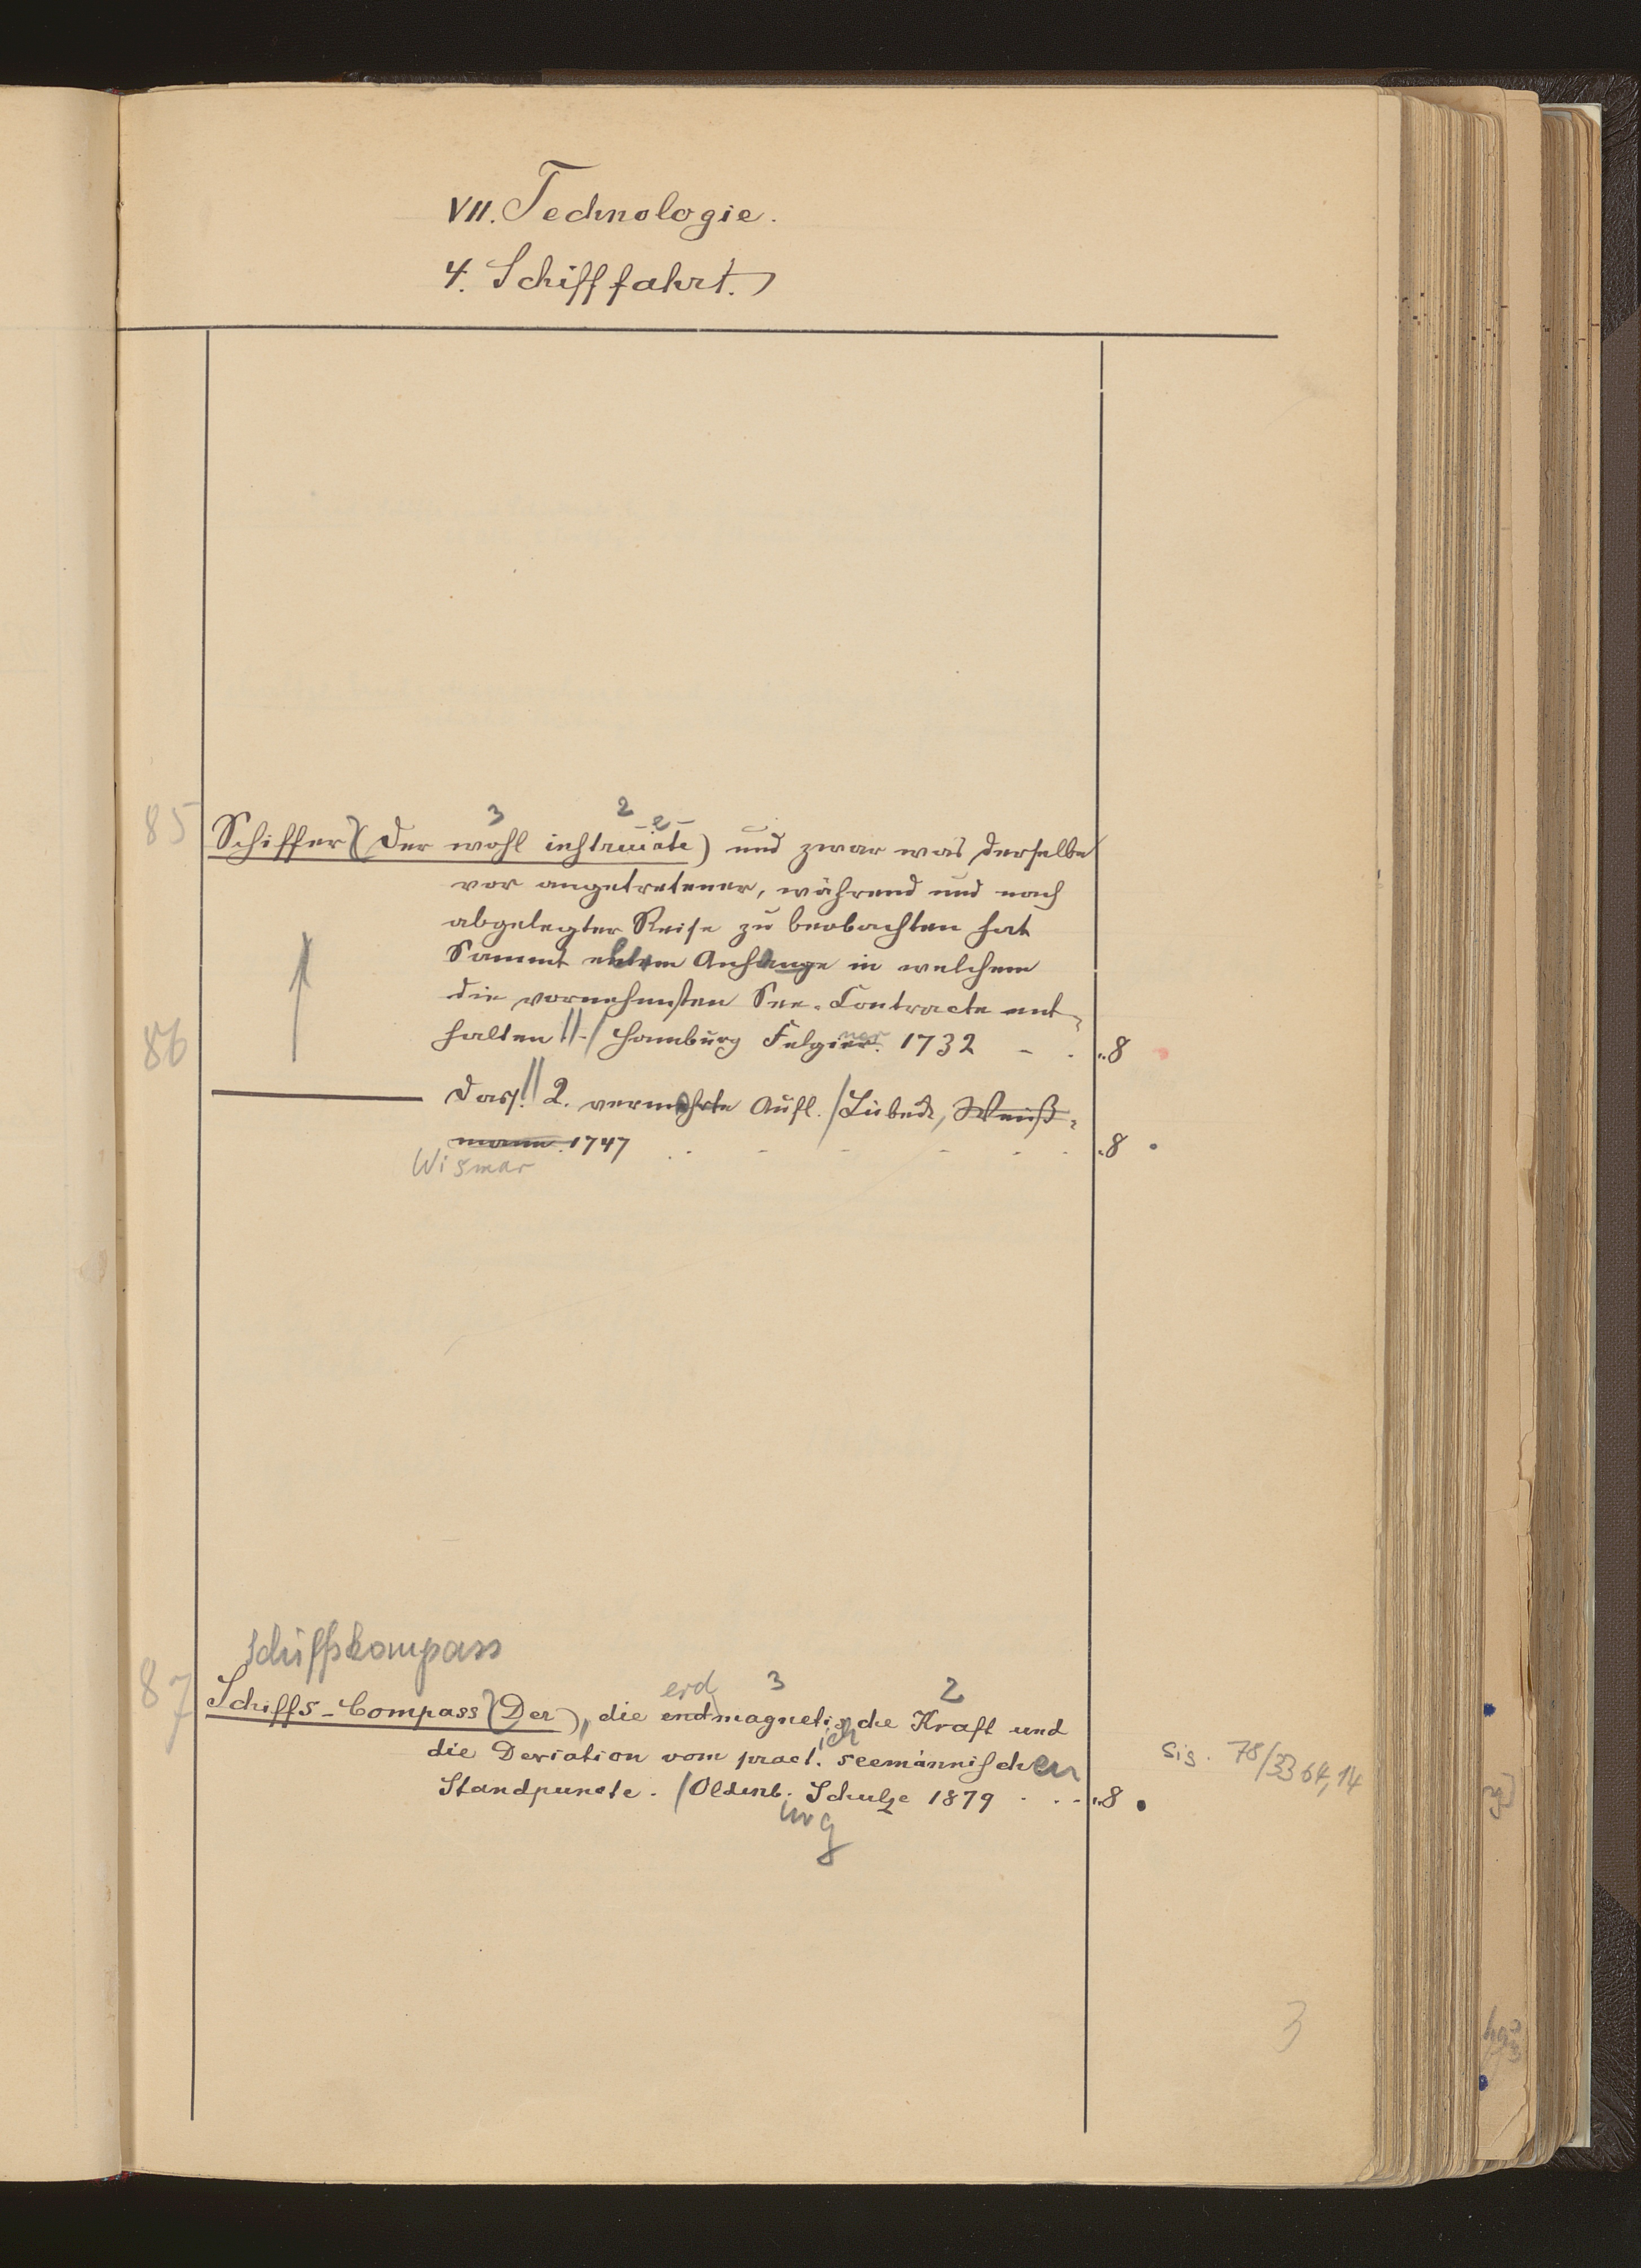 VII. Technologie.
4. Schifffahrt.
3 2 -e-
85 Schiffer (Der wohl instruiate) und zwar was derselbe
vor angetretener, während und nach
abgelegter Reise zu beobachten hat
Sammt Anhange in welchem
die vornehmsten See-Contracte ent-
86 halten // - / Hamburg 1732 - . „8
Dass. // 2. vermehrte Aufl. / Lübeck, Weiß-
mann. 1747 . . - - - - - „8
Wismar
Schiffskompass
erd 3 2
87 Schiffs-Compass (Der), die endmagnetische Kraft und
ich
die Deviation vom pract. seemännischen
Sig. 78/33 64,14
Standpuncte. / Oldenb. Schulze 1879 . . - „8
urg
3